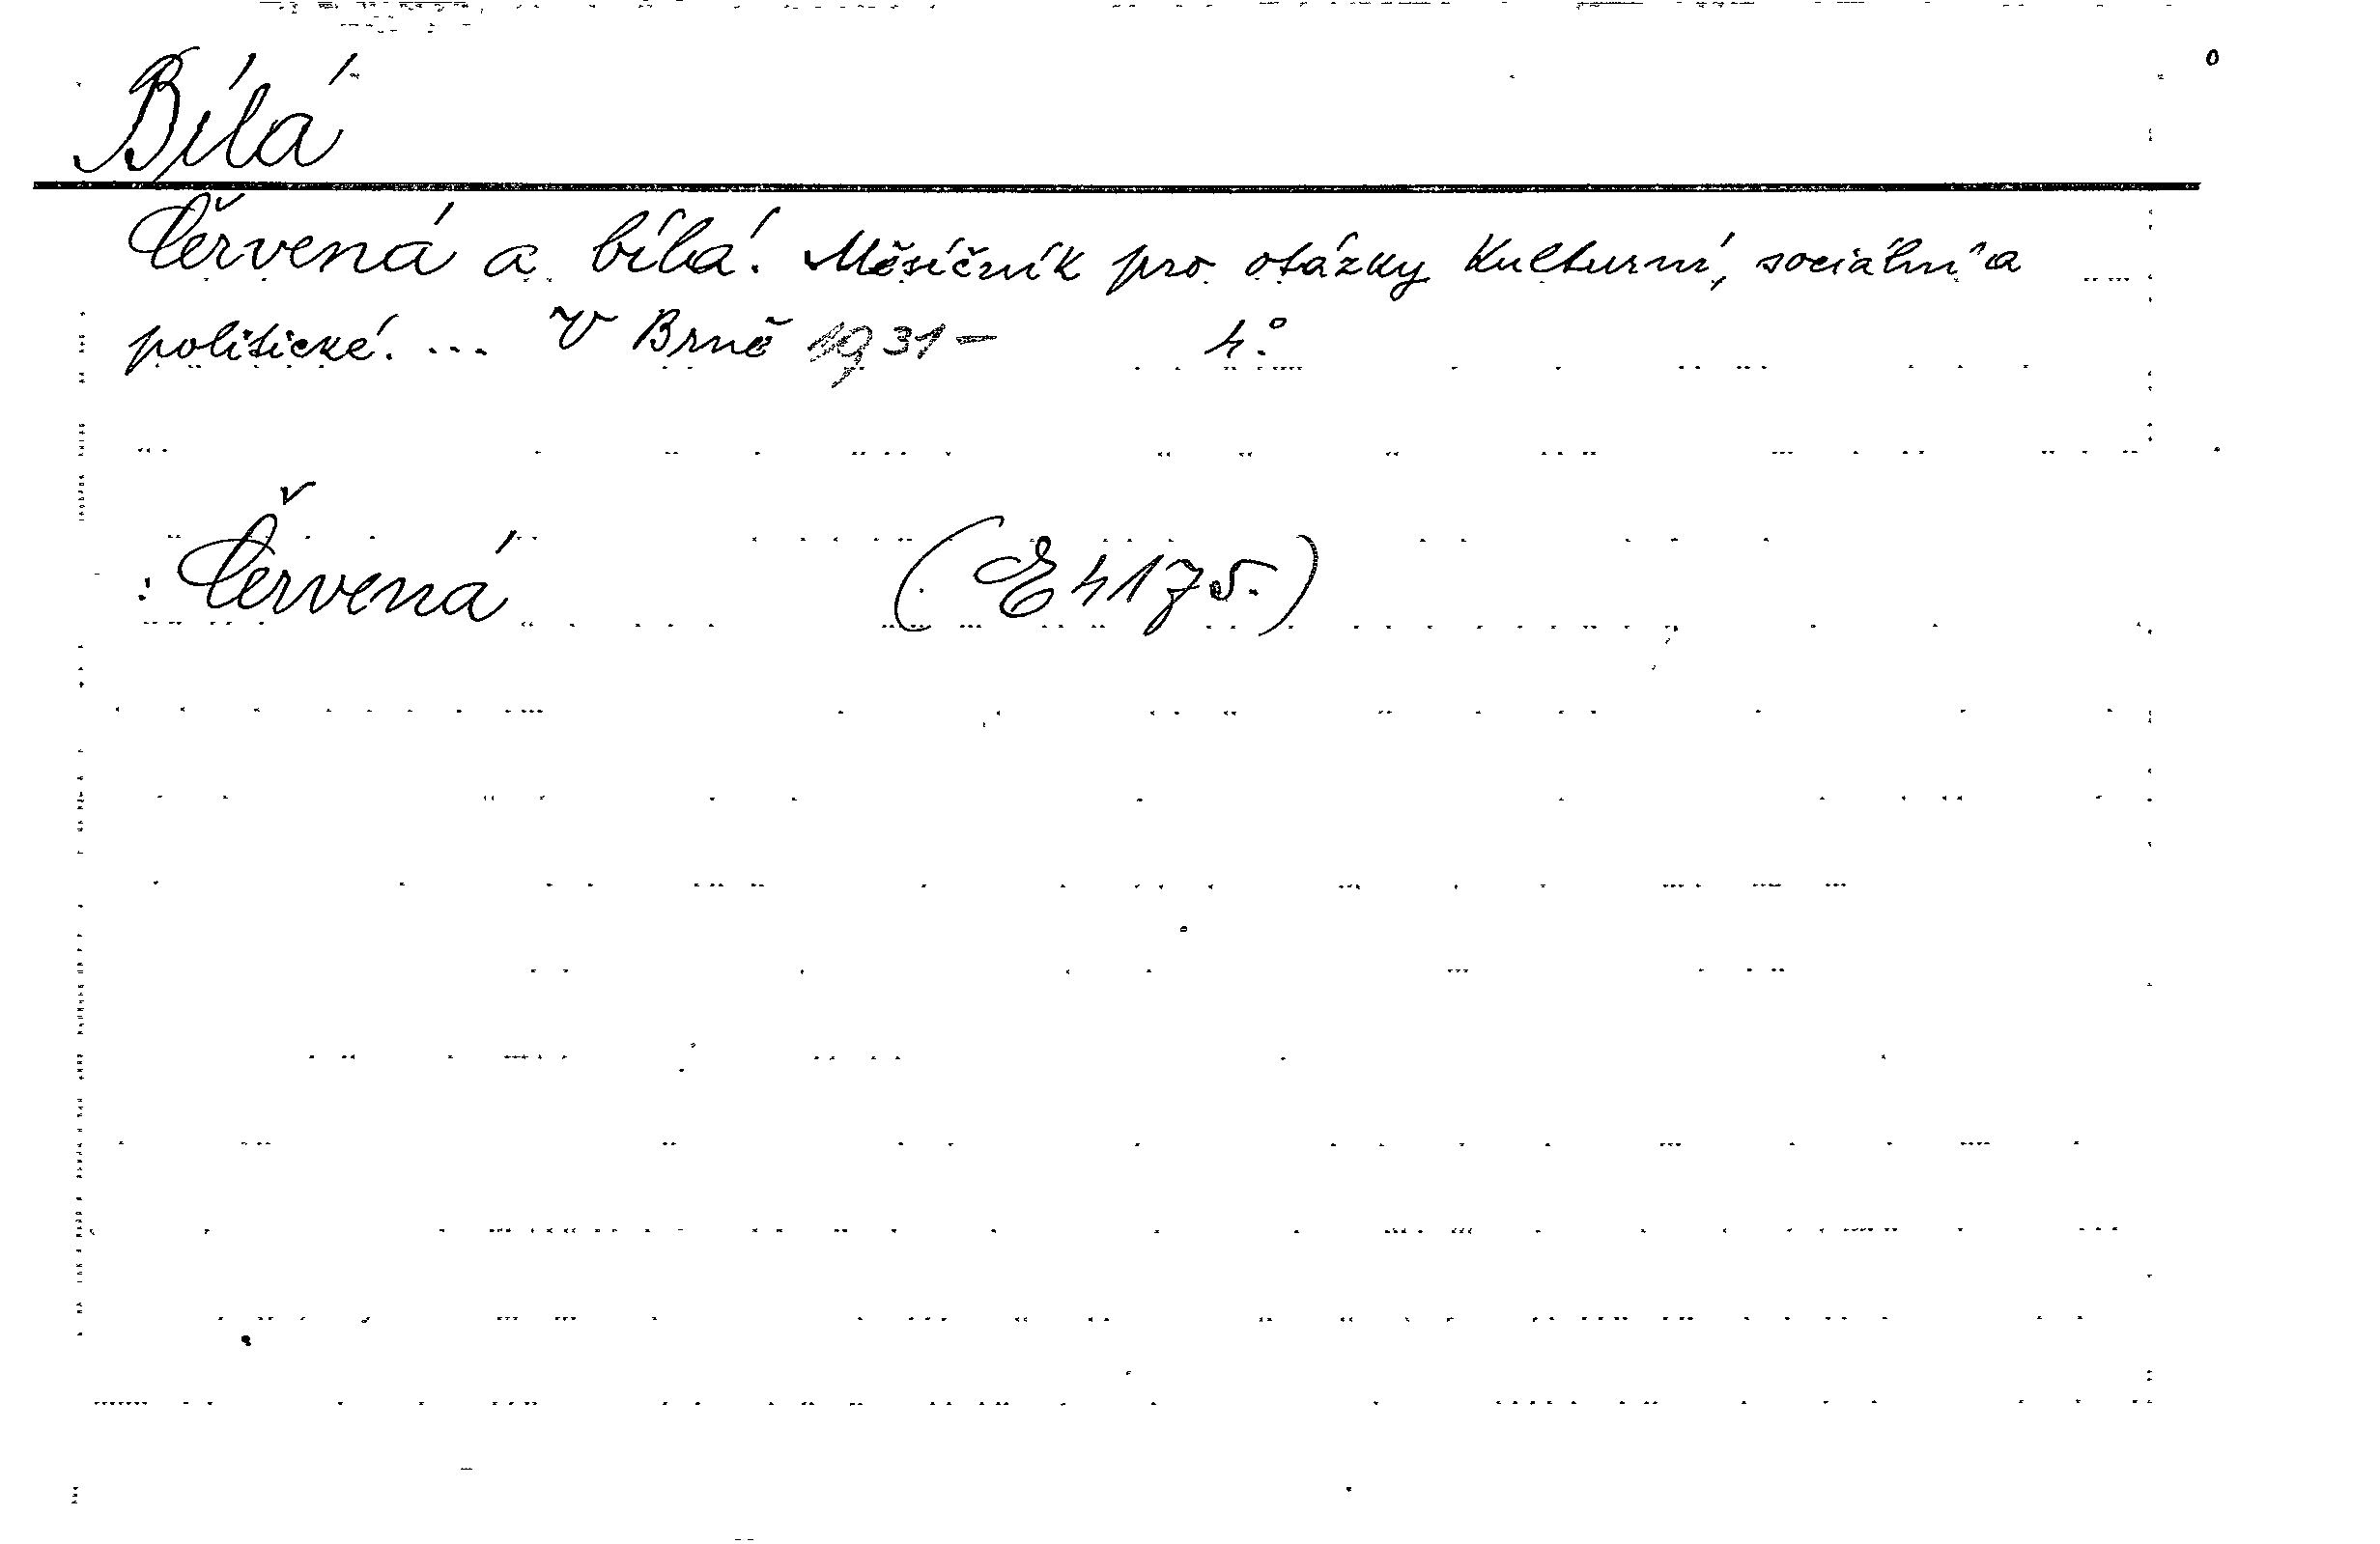 Bílá
Červená a bílá. Měsíčník pro otázky kulturní, sociální a
politické. ... V Brně 1931- 4.°
: Červená (E 4175.)